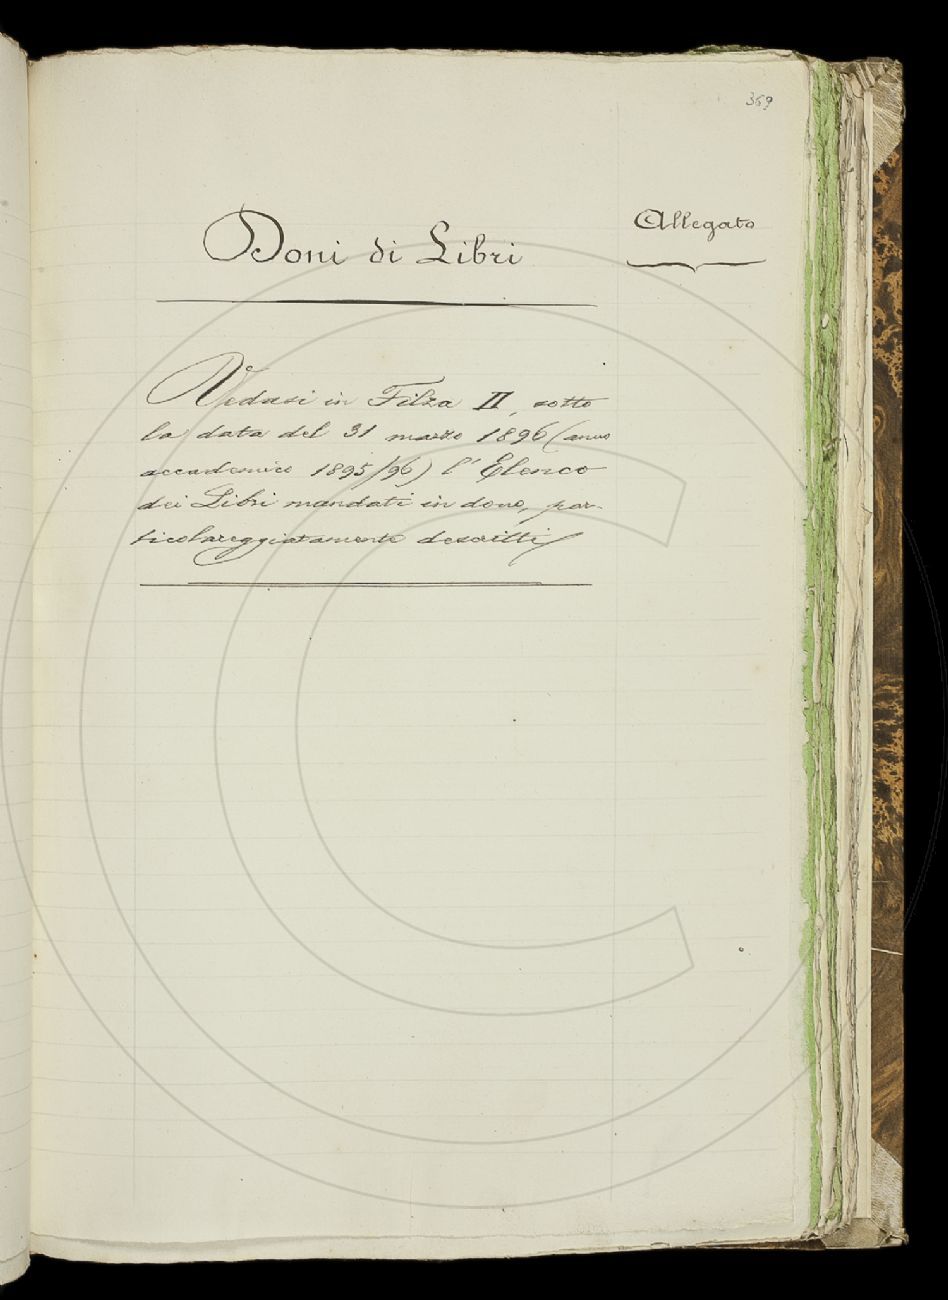 369
Doni di Libri
Allegato
Vedasi in Filza II, sotto
la data del 31 marzo 1896 (anno
accademico 1895/96) l'Elenco
dei Libri mandati in dono, par-
ticolareggiatamente descritti